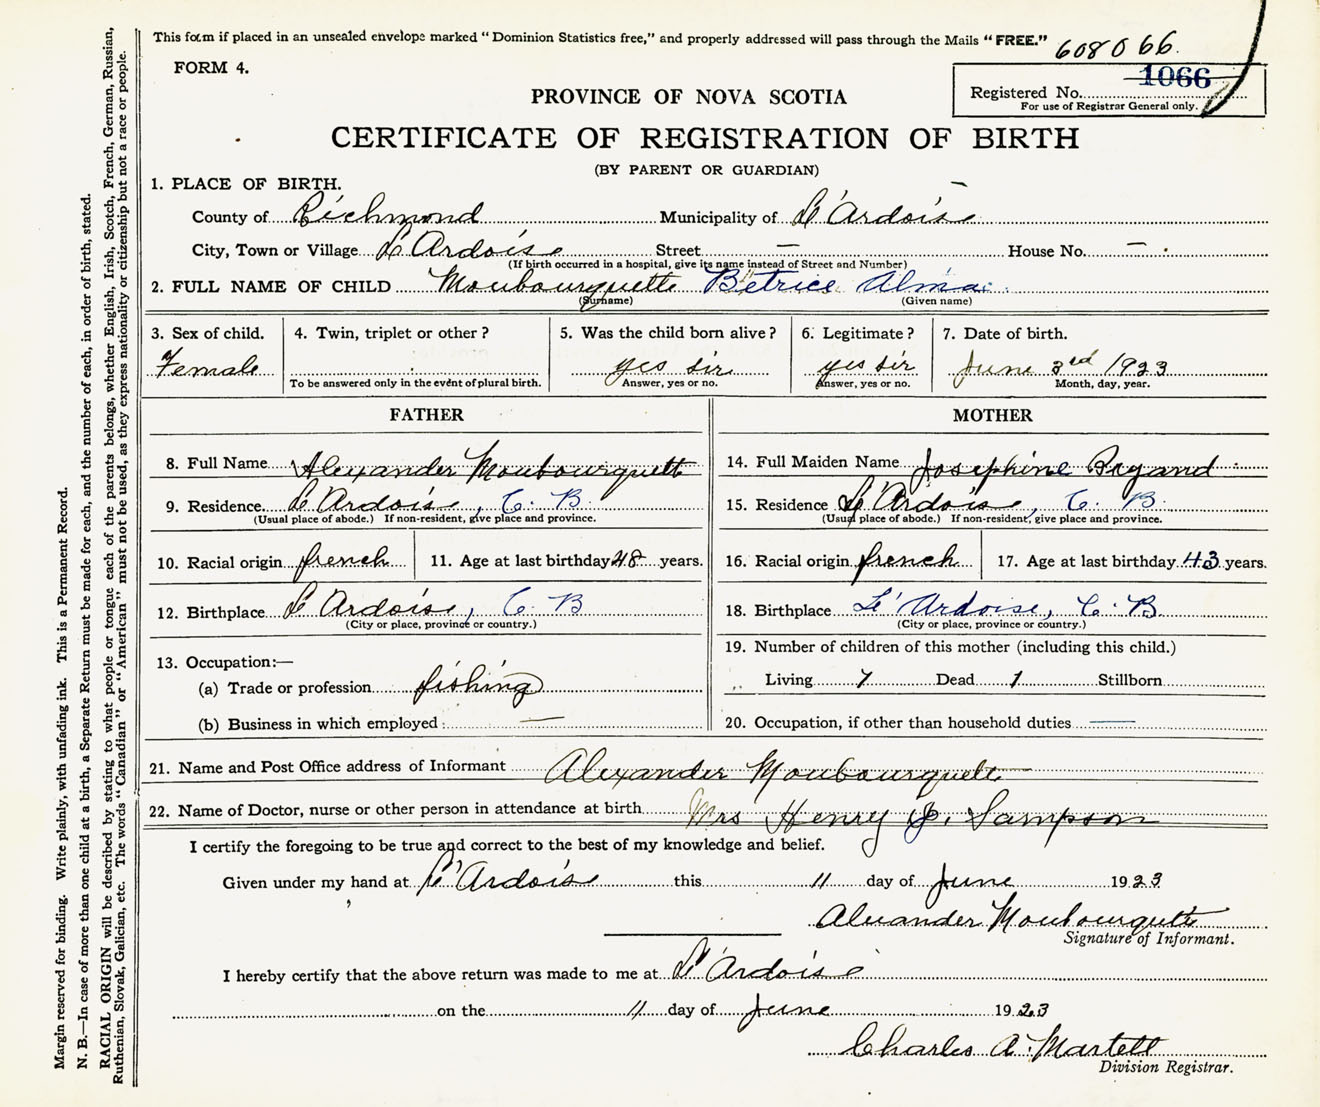 This form if placed in an unsealed envelope marked "Dominion Statistics free," and properly addressed will pass through the Mails "FREE."
608066.
FORM 4.
1066
Registered No.
For use of Registrar General only.
PROVINCE OF NOVA SCOTIA
CERTIFICATE OF REGISTRATION OF BIRTH
(BY PARENT OR GUARDIAN)
1. PLACE OF BIRTH.
County of Richmond Municipality of L'Ardoise
City, Town or Village L'Ardoise Street — House No. —
(If birth occurred in a hospital, give its name instead of Street and Number)
2. FULL NAME OF CHILD Moubourquette Betrice Alma
(Surname) (Given name)
3. Sex of child. 4. Twin, triplet or other? 5. Was the child born alive? 6. Legitimate? 7. Date of birth.
Female yes sir yes sir June 3rd 1923
To be answered only in the event of plural birth. Answer, yes or no. Answer, yes or no. Month, day, year.
FATHER MOTHER
8. Full Name Alexander Moubourquett 14. Full Maiden Name Josephine Brgand
9. Residence. L'Ardoise, C. B. 15. Residence L'Ardoise, C. B.
(Usual place of abode.) If non-resident, give place and province. (Usual place of abode.) If non-resident, give place and province.
10. Racial origin french 11. Age at last birthday 48 years. 16. Racial origin french 17. Age at last birthday 43 years.
12. Birthplace L'Ardoise, C. B 18. Birthplace L'Ardoise, C. B
(City or place, province or country.) (City or place, province or country.)
13. Occupation:— 19. Number of children of this mother (including this child.)
(a) Trade or profession fishing Living 7 Dead 1 Stillborn
(b) Business in which employed: — 20. Occupation, if other than household duties —
21. Name and Post Office address of Informant Alexander Moubourquett
22. Name of Doctor, nurse or other person in attendance at birth Mrs Henry J. Sampson
I certify the foregoing to be true and correct to the best of my knowledge and belief.
Given under my hand at L'Ardoise this 11 day of June 1923
Alexander Moubourquette
Signature of Informant.
I hereby certify that the above return was made to me at L'Ardoise
on the 11 day of June 1923
Charles A. Martell
Division Registrar.
Margin reserved for binding. Write plainly, with unfading ink. This is a Permanent Record.
N. B.—In case of more than one child at a birth, a Separate Return must be made for each, and the number of each, in order of birth, stated.
RACIAL ORIGIN will be described by stating to what people or tongue each of the parents belongs, whether English, Irish, Scotch, French, German, Russian,
Ruthenian, Slovak, Galician, etc. The words "Canadian" or "American" must not be used, as they express nationality or citizenship but not a race or people.